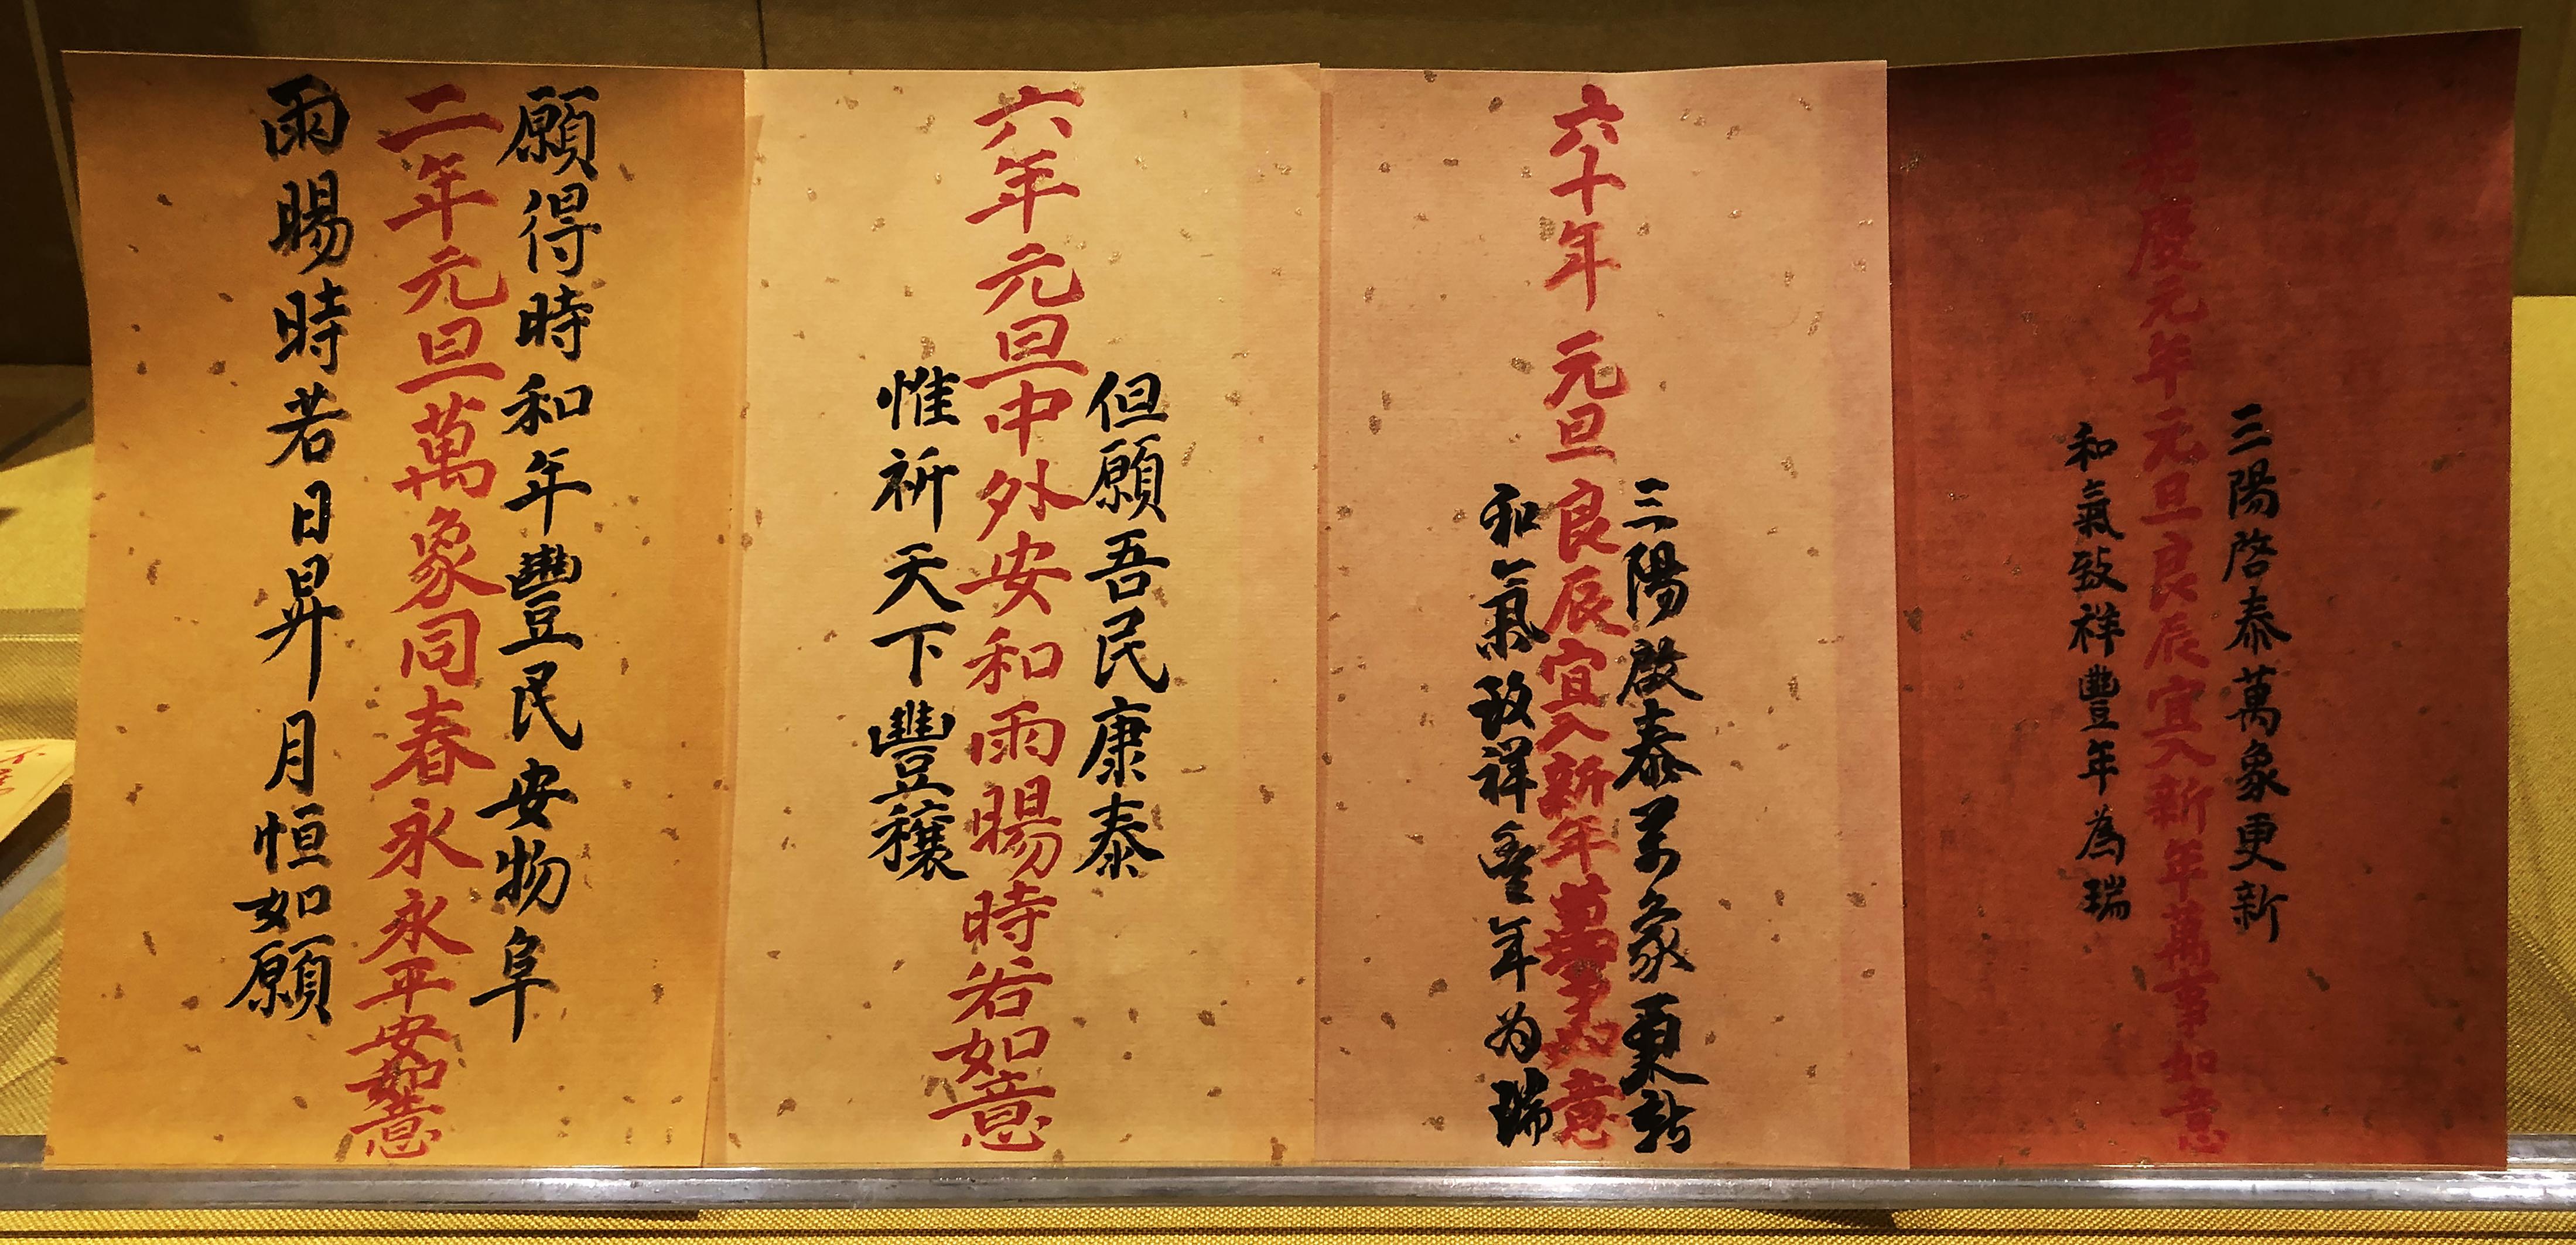 三陽啓泰萬象更新
嘉慶元年元旦良辰宜入新年萬事如意
和氣致祥豐年為瑞
三陽啟泰萬象更新
六十年元旦良辰宜入新年萬事如意
和氣致祥豐年为瑞
但願吾民康泰
六年元旦中外安和雨暘時若如意
惟祈天下豐穰
願得時和年豐民安物阜
二年元旦萬象同春永永平安如意
雨暘時若日昇月恒如願